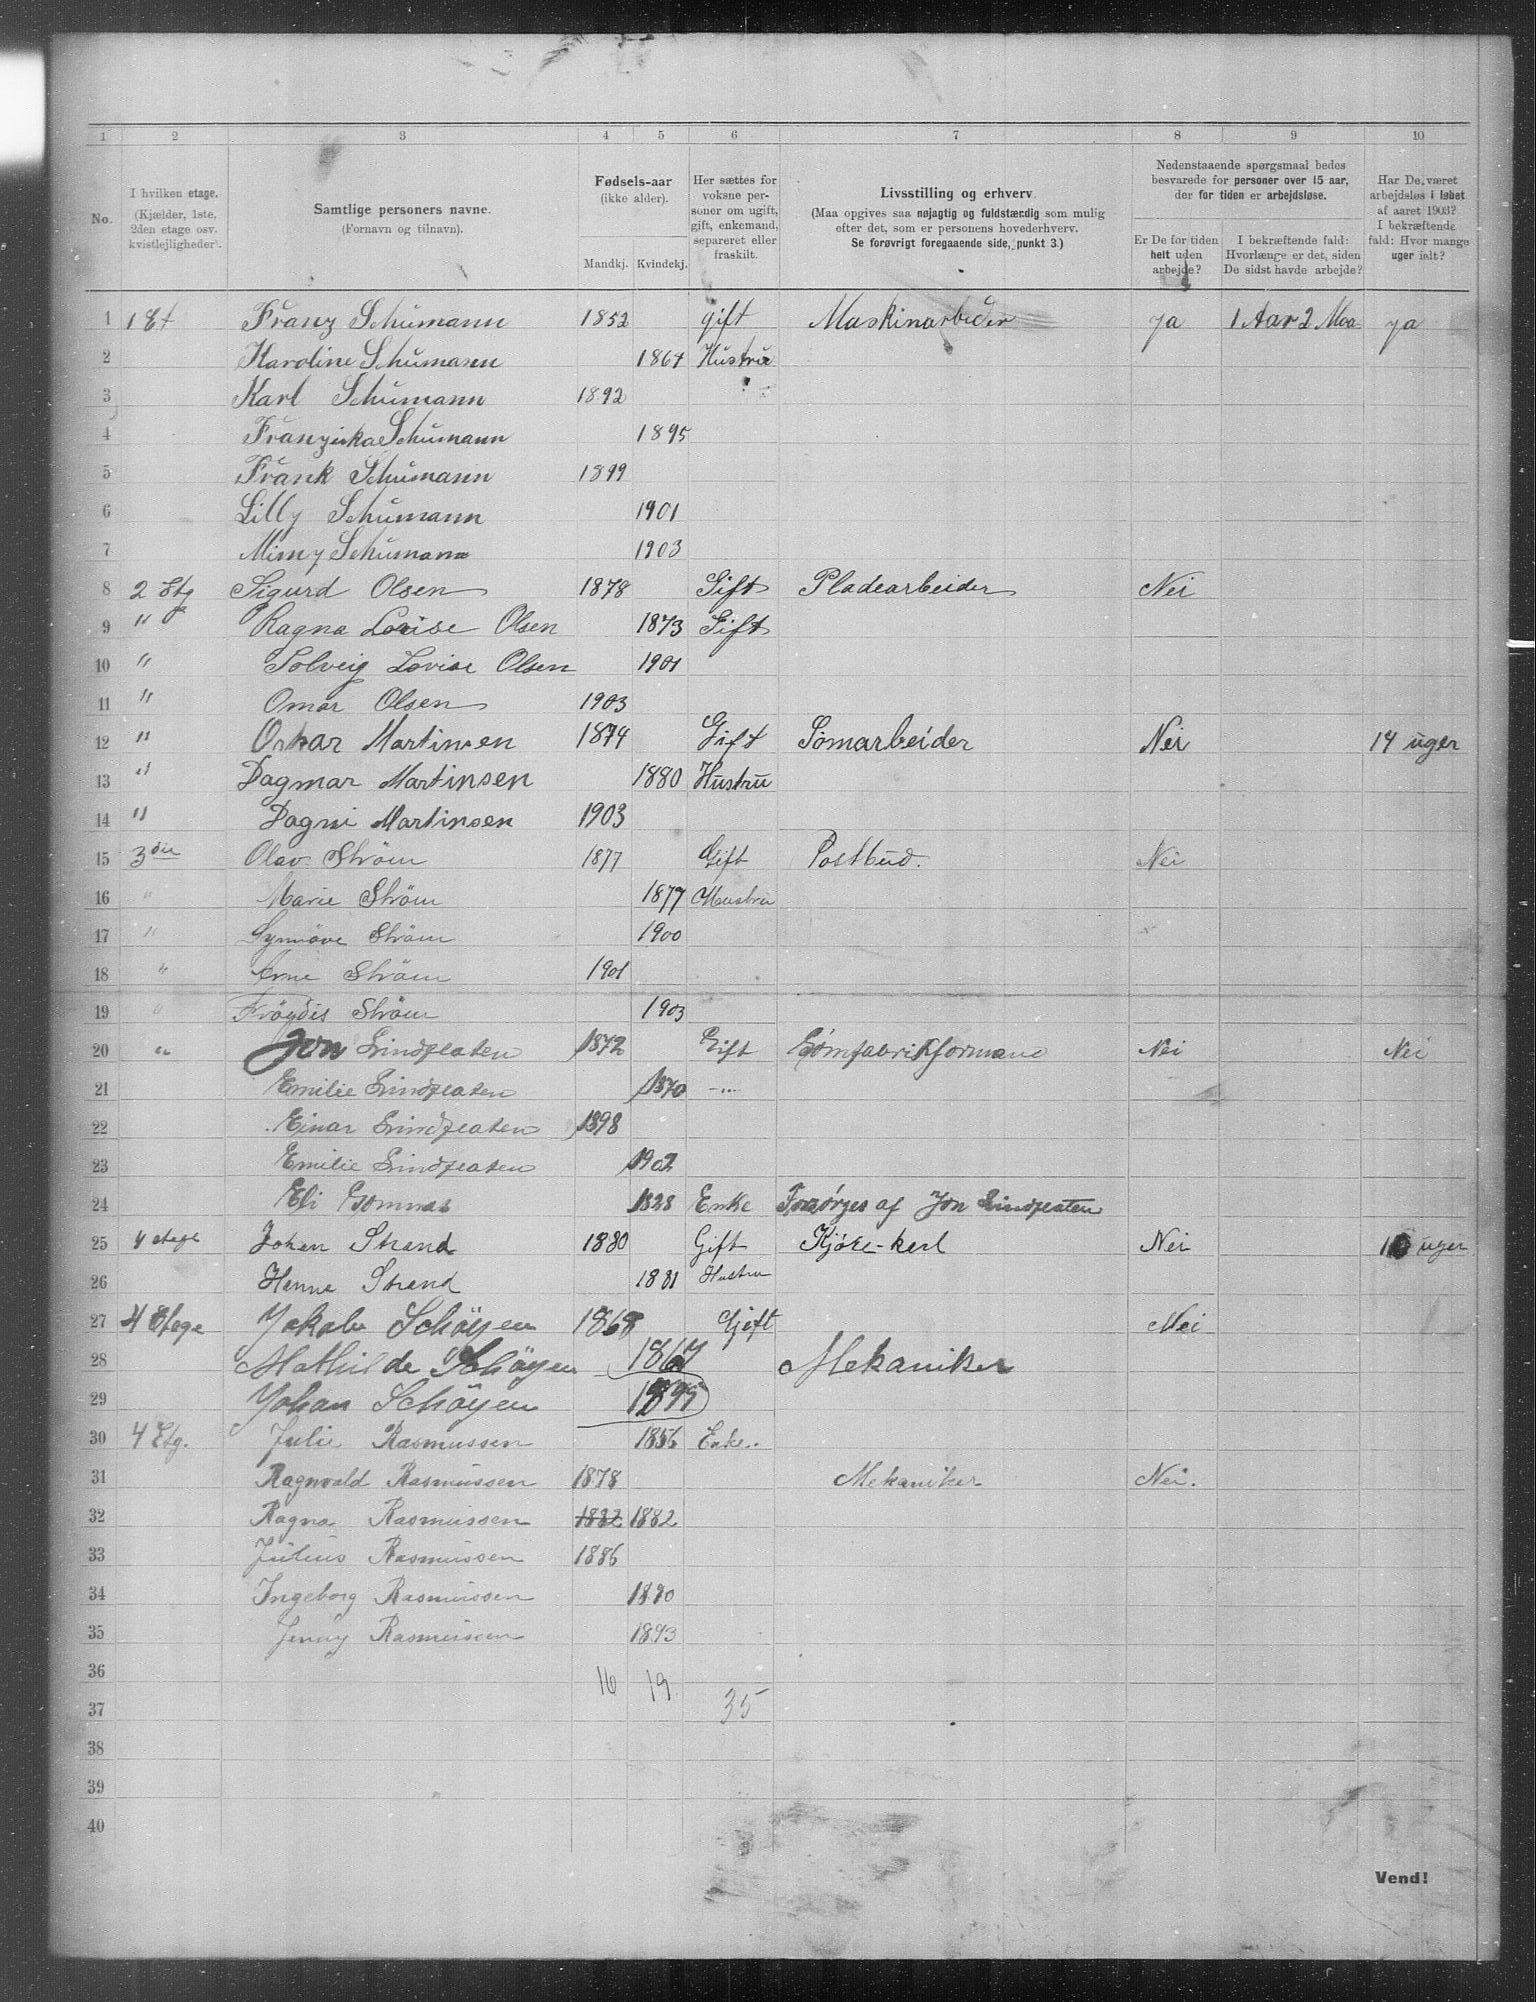 1 2 3 4 5 6 7 8 9 10
No.
I hvilken etage.
(Kjælder, 1ste,
2den etage osv.
kvistlejligheder).
Samtlige personers navne.
(Fornavn og tilnavn).
Fødsels-aar
(ikke alder).
Mandkj. Kvindekj.
Her sættes for
voksne per-
soner om ugift,
gift, enkemand,
separeret eller
fraskilt.
Livsstilling og erhverv.
(Maa opgives saa nøjagtig og fuldstændig som mulig
efter det, som er personens hovederhverv.
Se forøvrigt foregaaende side, punkt 3.)
Nedenstaaende spørgsmaal bedes
besvarede for personer over 15 aar,
der for tiden er arbejdsløse.
Er De for tiden
helt uden
arbejde?
I bekræftende fald:
Hvorlænge er det, siden
De sidst havde arbejde?
Har De været
arbejdsløs i løbet
af aaret 1903?
I bekræftende
fald: Hvor mange
uger ialt?
1 1 Et Franz Schumann 1852 gift Maskinarbeider ja 1 Aar 2 Moa ja
2 Karoline Schumann 1864 Hustru
3 Karl Schumann 1892
4 Franziska Schumann 1895
5 Frank Schumann 1899
6 Lilly Schumann 1901
7 Mimy Schumann 1903
8 2 Etg Sigurd Olsen 1878 Gift Pladearbeider Nei
9 " Ragna Lovise Olsen 1873 Gift
10 " Solveig Lovise Olsen 1901
11 " Omar Olsen 1903
12 " Oskar Martinsen 1874 Gift Sömarbeider Nei 14 uger
13 " Dagmar Martinsen 1880 Hustru
14 " Dagni Martinsen 1903
15 3die Olav Ström 1877 Gift Postbud. Nei
16 " Marie Ström 1877 Hustru
17 " Synnöve Ström 1900
18 " Arne Ström 1901
19 " Fröydis Ström 1903
20 " Jon Lindflaten 1872 Gift Sømfabrikformand Nei Nei
21 Emilie Lindflaten 1870 -"-
22 Einar Lindflaten 1898
23 Emilie Lindflaten 1902
24 Eli 1828 Enke Forsörges af Jon Lindflaten
25 4 etage Johan Strand 1880 Gift Kjøre-karl Nei uger
26 Hanna Strand 1881 Hustru
27 4 Etage Jakob Schöyen 1868 Gift Nei
28 Mathilde Schöyen 1867 Mekaniker
29 Johan Schöyen 1895
30 4 Etg. Julie Rasmussen 1856 Enke.
31 Ragnvald Rasmussen 1878 Mekaniker Nei.
32 Ragna Rasmussen 1882 1882
33 Julius Rasmussen 1886
34 Ingeborg Rasmussen 1890
35 Jenny Rasmussen 1893
36 16 19
37 35
38
39
40
Vend!